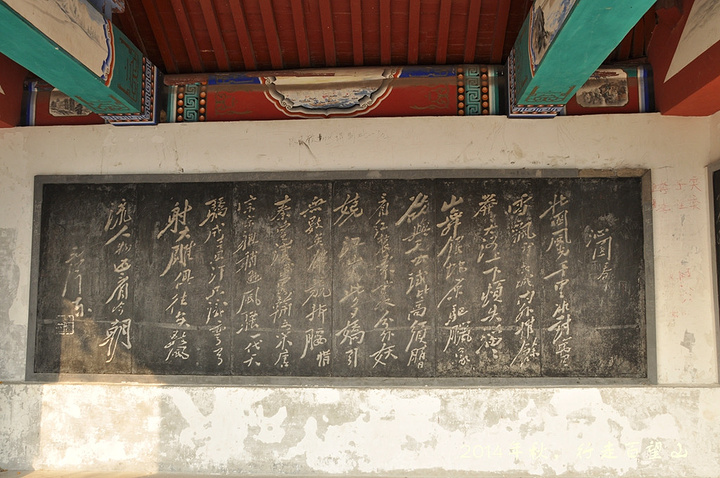 沁园春
北国风光千里冰封万里
雪飘望长城内外惟余
莽莽大河上下顿失滔滔
山舞银蛇原驰腊象
欲与天公试比高须晴日
看红装素裹分外妖
娆江山如此多娇引
无数英雄竞折腰惜
秦皇汉武略输文采唐
宗宋祖稍逊风骚一代天
骄成吉思汗只识弯弓
射大雕俱往矣数风
流人物还看今朝
毛泽东
2014年秋，行走百望山